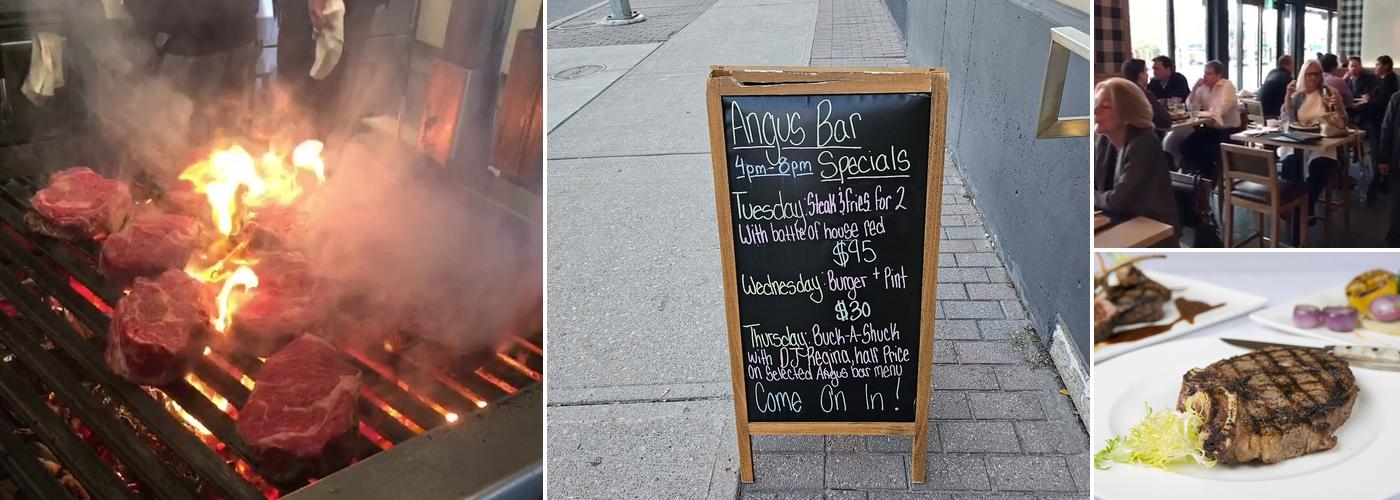 Angus Bar
4pm-8pm Specials
Tuesday: Steak & fries for 2
With bottle of house red
$95
Wednesday: Burger + Pint
$30
Thursday: Buck-A-Shuck
with DJ Regina, half Price
On Selected Angus bar menu
Come On In!